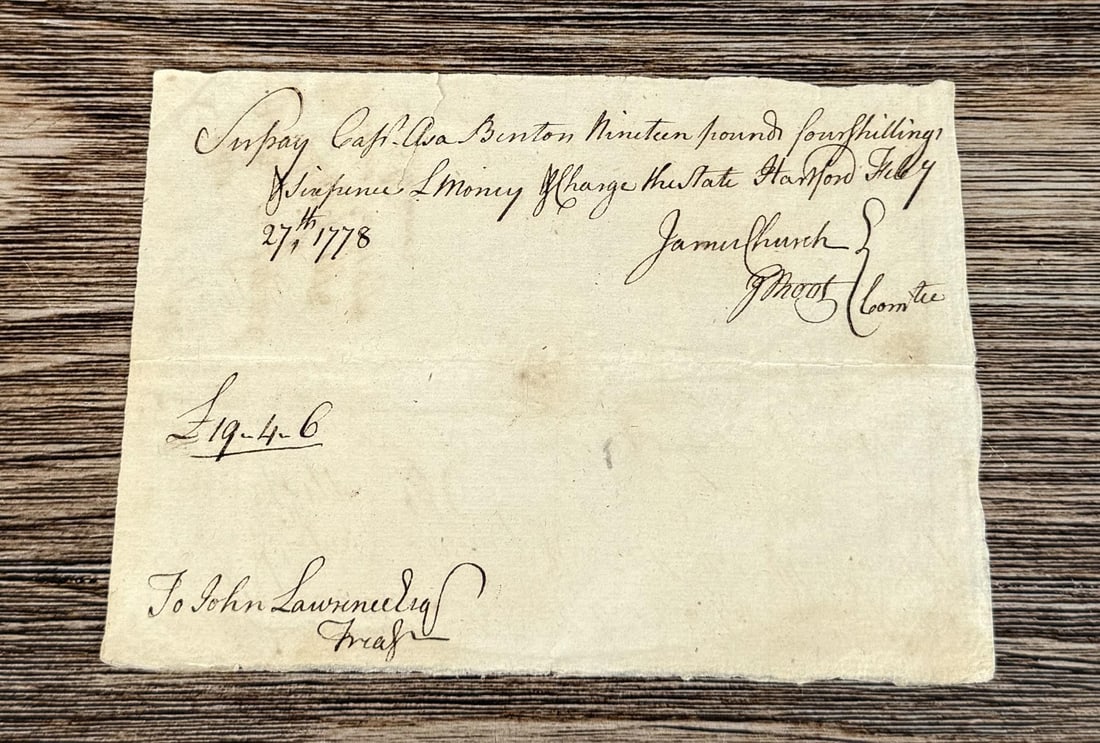 Sir pay Capt. Asa Benton Nineteen pounds four shillings
& Sixpence L Money & Charge the State Hartford Feby
27th, 1778
James Church
J Root
Comtee
£19-4-6
To John Lawrence Esq
Treasr